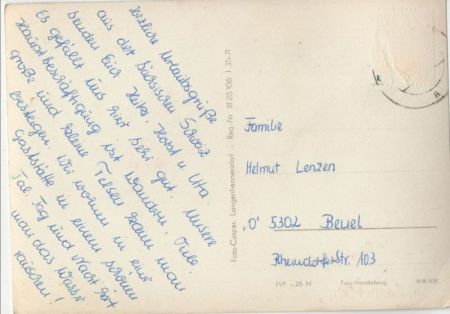 Herzliche Urlaubsgrüße
aus der Sächsischen Schweiz
senden Euch Heike, Horst u. Uta.
Es gefällt uns hier sehr gut. Unsere
Hauptbeschäftigung ist Wandern. Viele
große und kleine Felsen kann man
besteigen. Wir wohnen in einer
Gaststätte in einem schönen
Tal. Tag und Nacht hört
man das Wasser
rauschen!
Foto-Casper, Langenhennersdorf - Reg.-Nr. III 25 106 I 35-71
Familie
Helmut Lenzen
"O" 5302 Beuel
Rheindorferstr. 103
EVP -.25 M
Foto-Handabzug